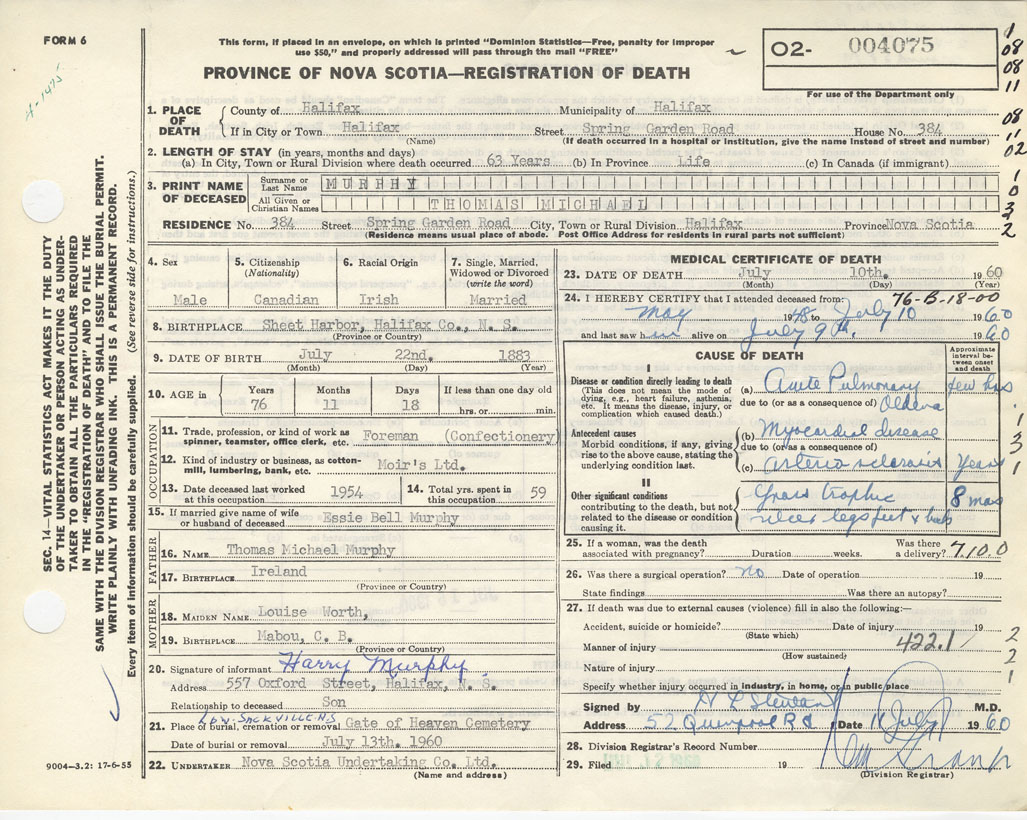 FORM 6
A-1475
This form, if placed in an envelope, on which is printed "Dominion Statistics—Free, penalty for improper
use $50," and properly addressed will pass through the mail "FREE"
PROVINCE OF NOVA SCOTIA—REGISTRATION OF DEATH
O2- 004075
For use of the Department only
1
08
08
11
08
11
02
1
0
3
2
2
1. PLACE OF DEATH
County of Halifax Municipality of Halifax
If in City or Town Halifax Street Spring Garden Road House No. 384
(Name) (If death occurred in a hospital or institution, give the name instead of street and number)
2. LENGTH OF STAY (in years, months and days)
(a) In City, Town or Rural Division where death occurred 63 Years (b) In Province Life (c) In Canada (if immigrant)
3. PRINT NAME OF DECEASED
Surname or Last Name MURPHY
All Given or Christian Names THOMAS MICHAEL
RESIDENCE No. 384 Street Spring Garden Road City, Town or Rural Division Halifax Province Nova Scotia
(Residence means usual place of abode. Post Office Address for residents in rural parts not sufficient)
4. Sex
Male
5. Citizenship
(Nationality)
Canadian
6. Racial Origin
Irish
7. Single, Married,
Widowed or Divorced
(write the word)
Married
8. BIRTHPLACE Sheet Harbor, Halifax Co., N. S.
(Province or Country)
9. DATE OF BIRTH July 22nd. 1883
(Month) (Day) (Year)
10. AGE in
Years Months Days If less than one day old
76 11 18 hrs. or min.
OCCUPATION
11. Trade, profession, or kind of work as
spinner, teamster, office clerk, etc. Foreman (Confectionery
12. Kind of industry or business, as cotton-
mill, lumbering, bank, etc. Moir's Ltd.
13. Date deceased last worked
at this occupation 1954
14. Total yrs. spent in
this occupation 59
15. If married give name of wife
or husband of deceased Essie Bell Murphy
FATHER
16. NAME Thomas Michael Murphy
17. BIRTHPLACE Ireland
(Province or Country)
MOTHER
18. MAIDEN NAME Louise Worth,
19. BIRTHPLACE Mabou, C. B.
(Province or Country)
20. Signature of informant Harry Murphy
Address 557 Oxford Street, Halifax, N. S.
Relationship to deceased Son
LOW. SACKVILLE N.S
21. Place of burial, cremation or removal Gate of Heaven Cemetery
Date of burial or removal July 13th. 1960
22. UNDERTAKER Nova Scotia Undertaking Co. Ltd.
(Name and address)
MEDICAL CERTIFICATE OF DEATH
23. DATE OF DEATH July 10th. 1960
(Month) (Day) (Year)
76-B-18-00
24. I HEREBY CERTIFY that I attended deceased from:
May 1948 to July 10 1960
and last saw him alive on July 9th 1960
CAUSE OF DEATH
Approximate
interval be-
tween onset
and death
I
Disease or condition directly leading to death
(This does not mean the mode of
dying, e.g., heart failure, asthenia,
etc. It means the disease, injury, or
complication which caused death.)
(a) Acute Pulmonary few hrs
due to (or as a consequence of) Oedema
Antecedent causes
Morbid conditions, if any, giving
rise to the above cause, stating the
underlying condition last.
(b) Myocardial disease
due to (or as a consequence of)
(c) Arterio sclerosis Years
1
3
1
II
Other significant conditions
contributing to the death, but not
related to the disease or condition
causing it.
trophic 8 mos
ulcer legs feet &
25. If a woman, was the death Was there
associated with pregnancy? Duration weeks. a delivery? 7100
26. Was there a surgical operation? no Date of operation 19
State findings Was there an autopsy?
27. If death was due to external causes (violence) fill in also the following:—
Accident, suicide or homicide? Date of injury 19
(State which)
Manner of injury 422.1
(How sustained)
2
2
1
Nature of injury
Specify whether injury occurred in industry, in home, or in public place
Signed by H L Stewart M.D.
Address 52 Quinpool Rd Date 11 July 1960
28. Division Registrar's Record Number
29. Filed JUL 12 1960 19
(Division Registrar)
SEC. 14—VITAL STATISTICS ACT MAKES IT THE DUTY
OF THE UNDERTAKER OR PERSON ACTING AS UNDER-
TAKER TO OBTAIN ALL THE PARTICULARS REQUIRED
IN THE "REGISTRATION OF DEATH" AND TO FILE THE
SAME WITH THE DIVISION REGISTRAR WHO SHALL ISSUE THE BURIAL PERMIT.
WRITE PLAINLY WITH UNFADING INK. THIS IS A PERMANENT RECORD.
Every item of information should be carefully supplied. (See reverse side for instructions.)
9004-3.2: 17-6-55